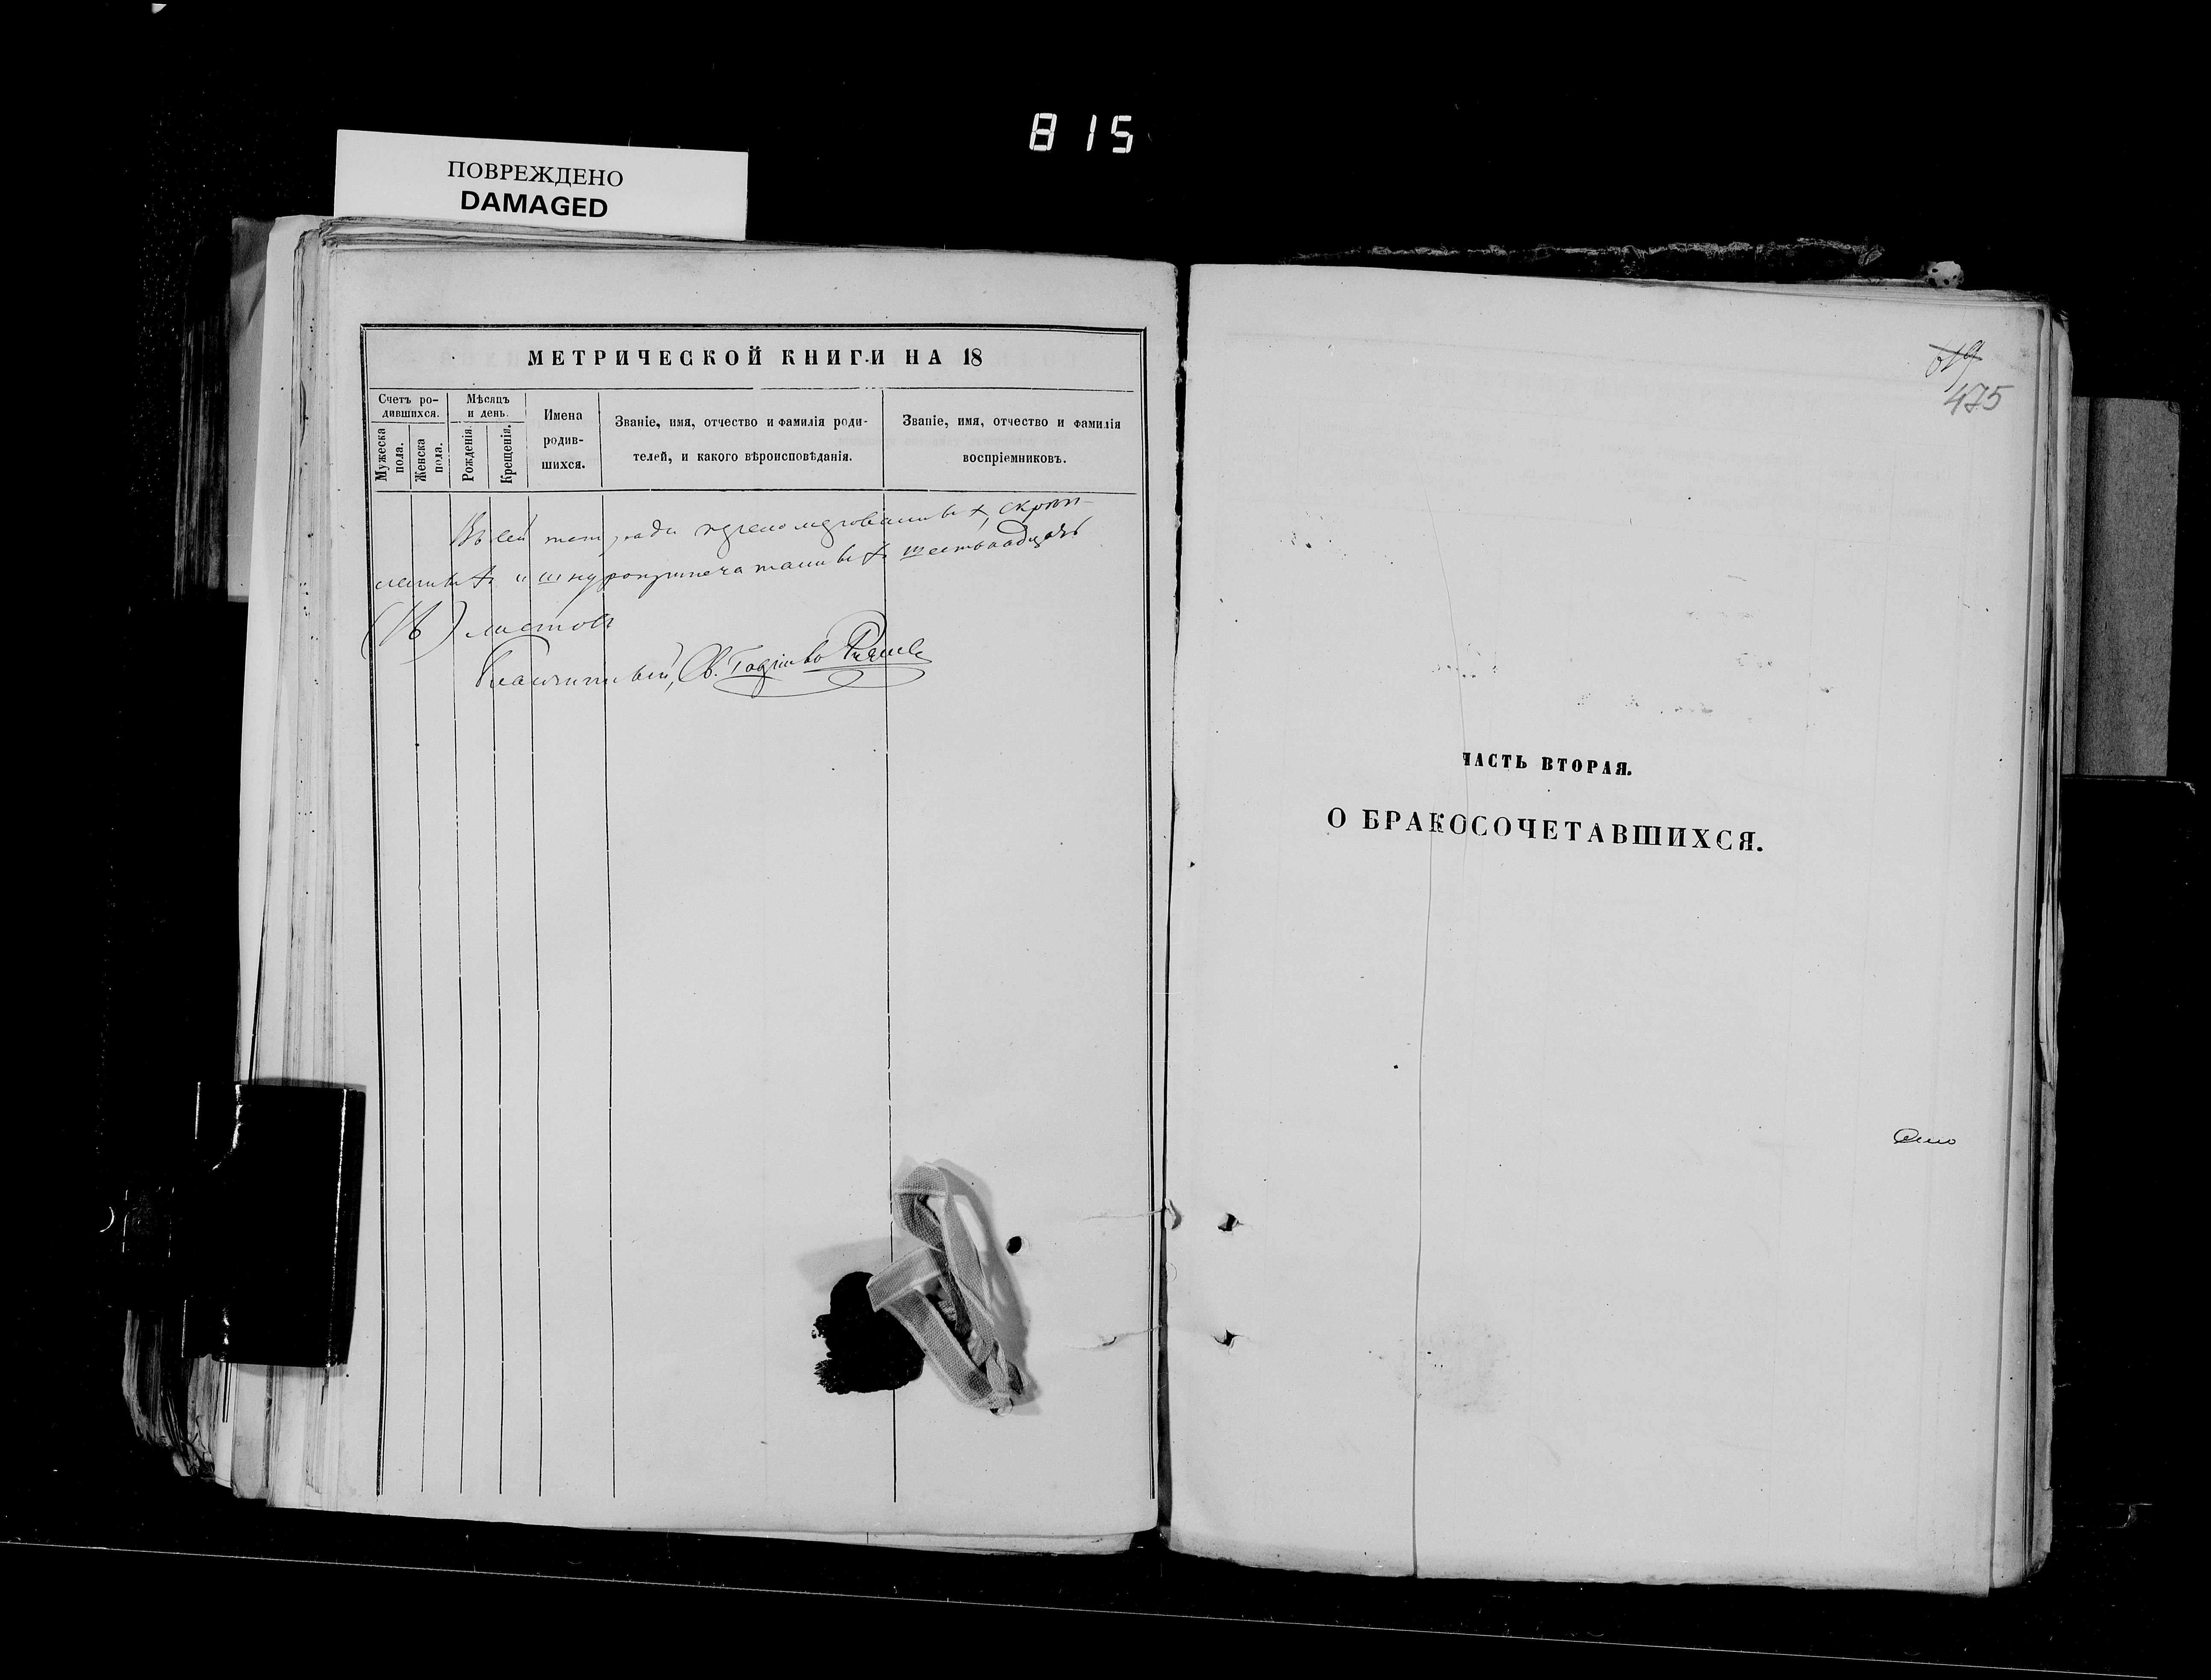 815
ПОВРЕЖДЕНО
DAMAGED
МЕТРИЧЕСКОЙ КНИГИ НА 18
Счетъ ро-
дившихся.
Мужеска
пола.
Женска
пола.
Мѣсяцъ
и день.
Рожденія.
Крещенія.
Имена
родив-
шихся.
Званіе, имя, отчество и фамилія роди-
телей, и какого вѣроисповѣданія.
Званіе, имя, отчество и фамилія
воспріемниковъ.
Въ сей тетради пренумерованныхъ, скрѣп-
ленныхъ и шнуроприпечатанныхъ шестьнадцать
(16) листовъ
Благочинный, Св.
619
475
ЧАСТЬ ВТОРАЯ.
О БРАКОСОЧЕТАВШИХСЯ.